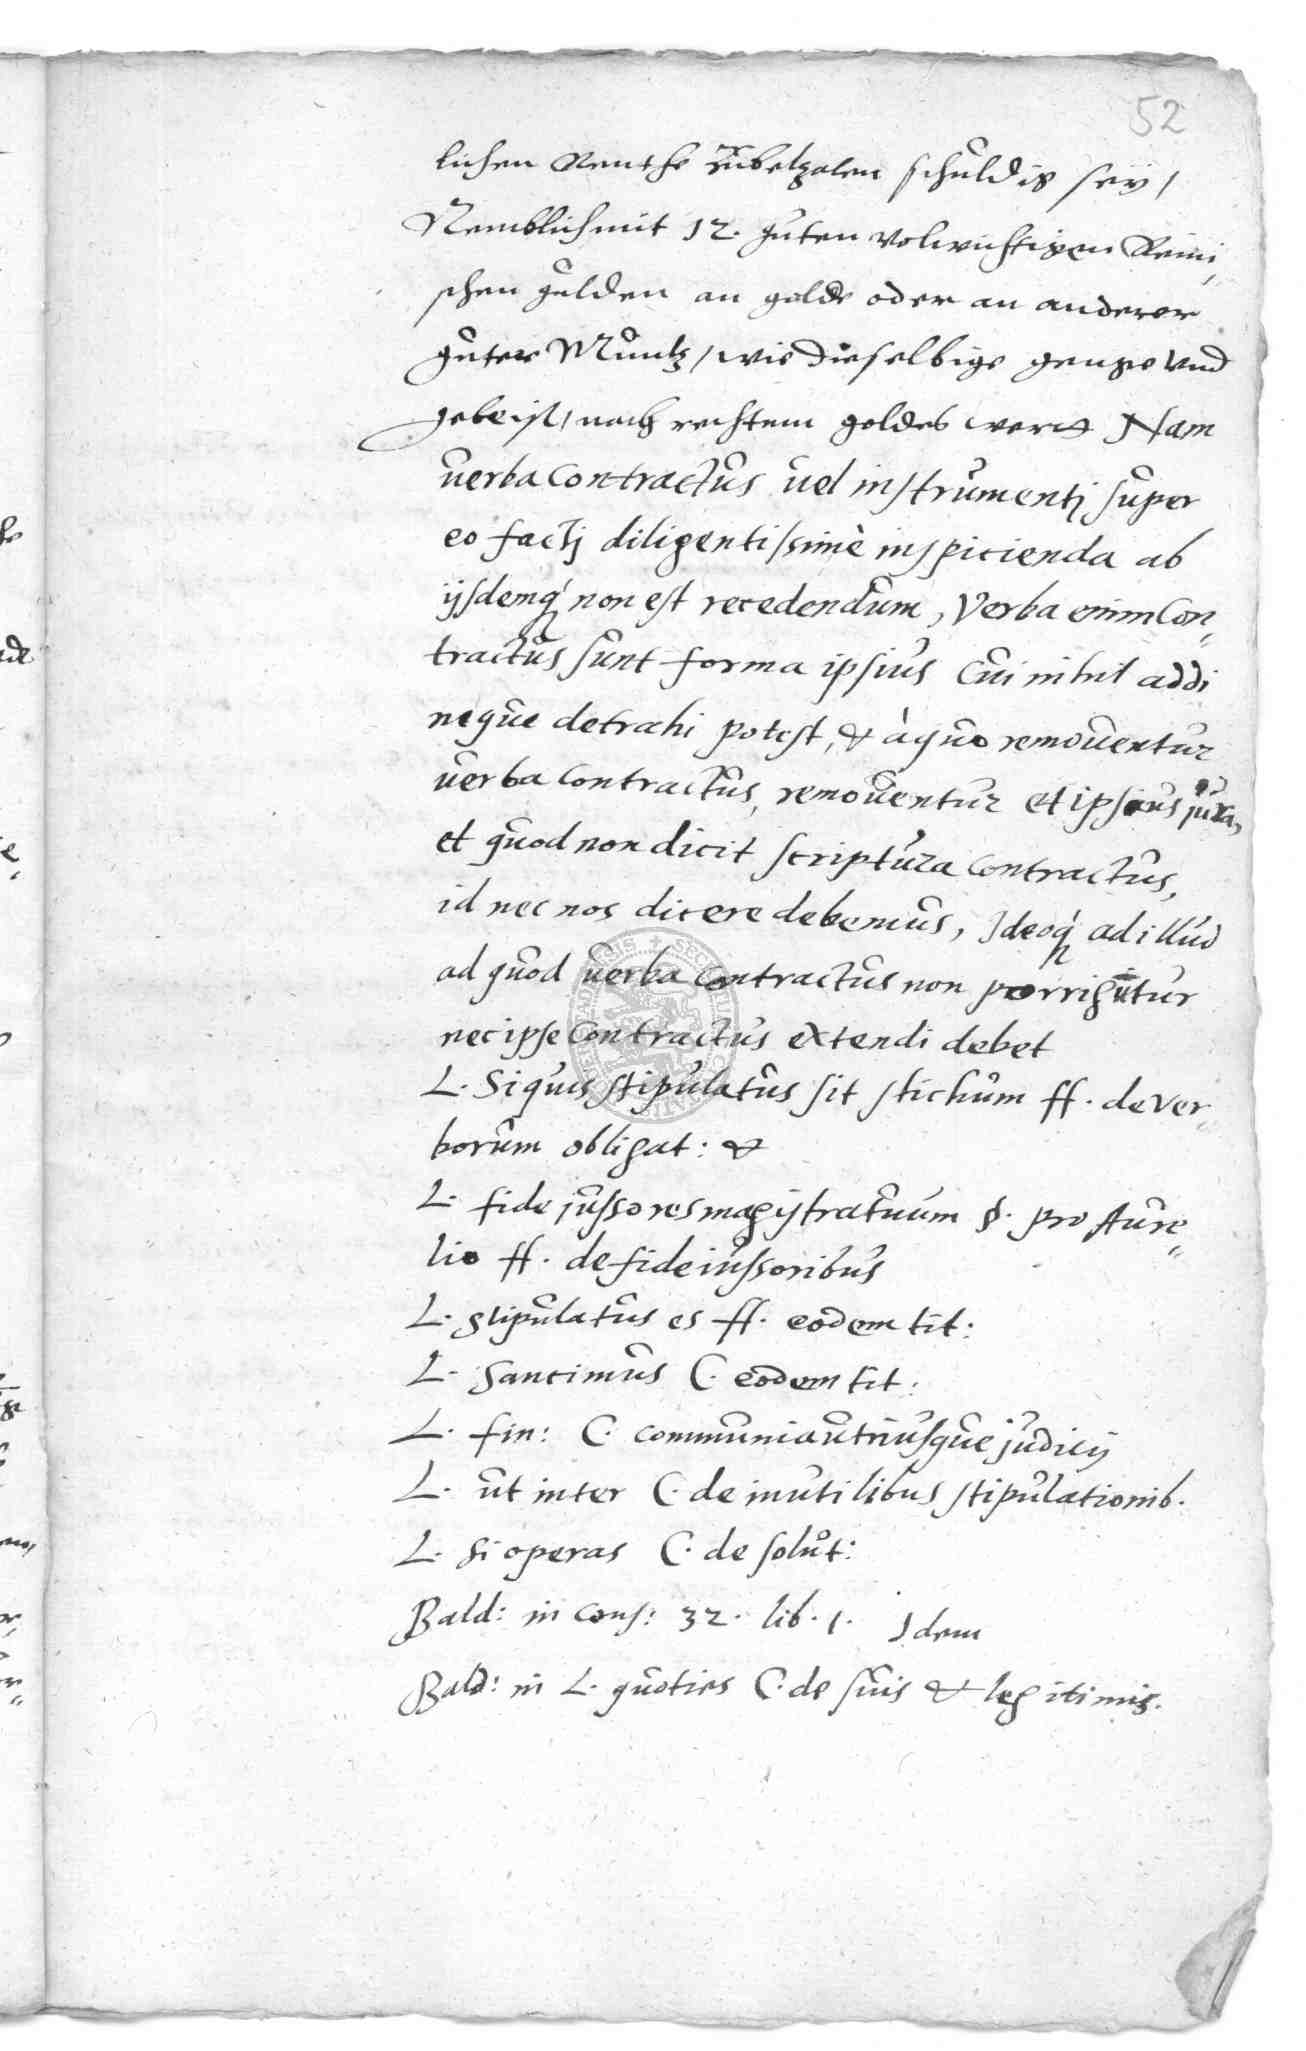 52
lichen Renthe Zubetzalen schuldig sey /
Nemblich mit 12. guten volwichtigen Reini,
schen gulden an golde oder an anderer
guter Muntz / wie dieselbige genge vnd
gebe ist / nach rechtem goldes wert Nam
verba contractus vel instrumentj super
eo factj diligentissimè inspicienda ab
ijsdemq́ non est recedendum, Verba enim Con„
tractus sunt forma ipsius Cui nihil addi
neque detrahi potest, & à quo remouentur
verba contractus, remouentur et ipsius jura,
et quod non dicit scriptura contractus,
id nec nos dicere debemus, Jdeoq́ ad illud
ad quod verba contractus non porrigūtur
nec ipse contractus extendi debet
L. Si quis stipulatus sit stichum ff. de ver„
borum obligat: &
L. fide jussores magistratuum §. pro Aure„
lio ff. de fideiussoribus
L. stipulatus es ff. eodem tit:
L. Sancimus C. eodem tit:
L. fin: C. communia utriusque judicij
L. ut inter C. de inutilibus stipulationib.
L. Si operas C. de solut:
Bald: in cons: 32. lib. 1. Jdem
Bald: in L. quoties C. de suis & legitimis.